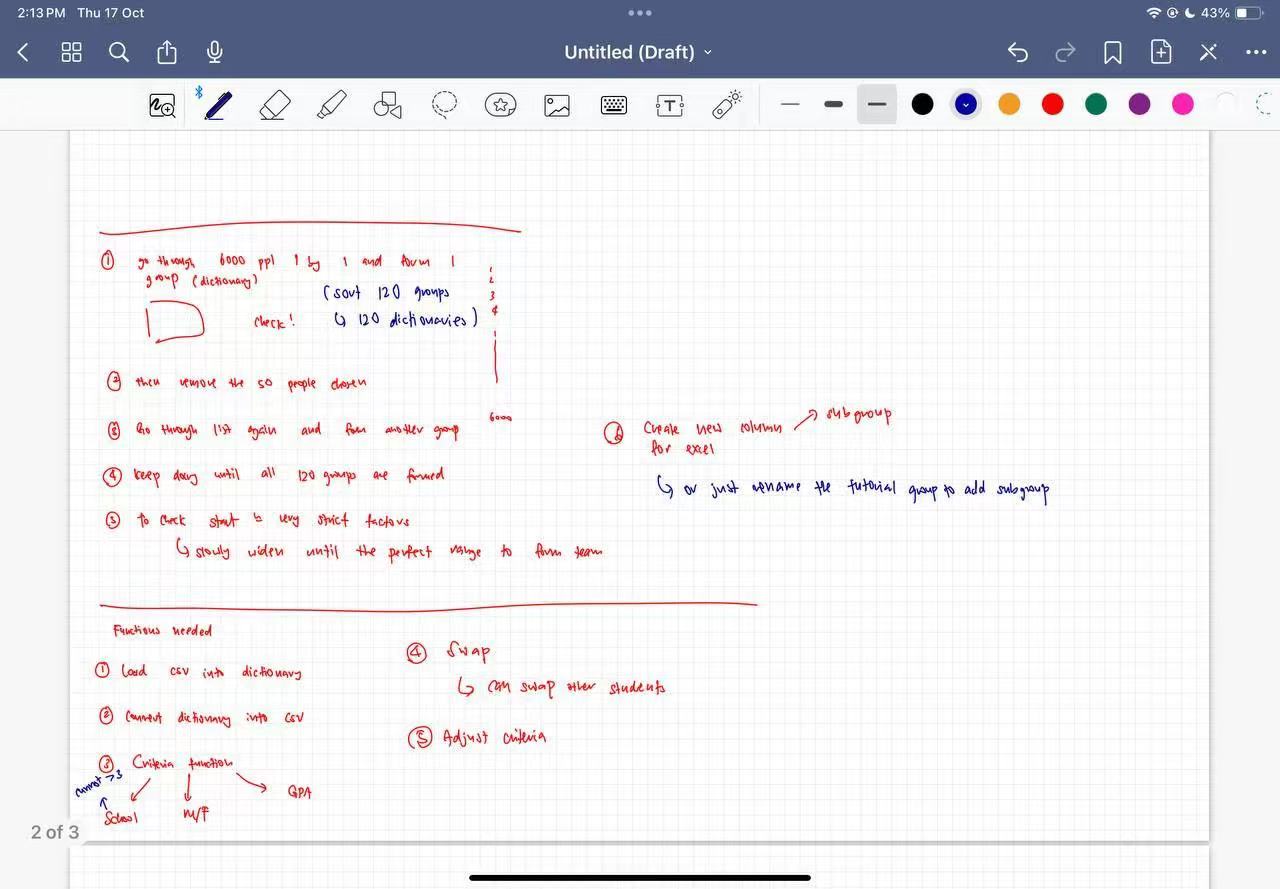 2:13 PM Thu 17 Oct
43%
Untitled (Draft)
① go through 6000 ppl 1 by 1 and form 1
group (dictionary)
(sort 120 groups
↳ 120 dictionaries)
check!
1
2
3
4
6000
② then remove the 50 people chosen
③ Go through list again and form another group
④ keep doing until all 120 groups are formed
⑤ To check start very strict factors
↳ slowly widen until the perfect range to form team
⑥ Create new column → subgroup
for excel
↳ or just rename the tutorial group to add subgroup
Functions needed
① Load csv into dictionary
② Convert dictionary into csv
③ Criteria function
cannot > 3
School
M/F
GPA
④ Swap
↳ can swap other students
⑤ Adjust criteria
2 of 3